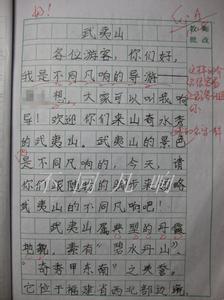 好！
武夷山
各位游客，你们好，
我是不同凡响的导游——
想，大家可以叫我
导！欢迎你们来山奇水秀
的武夷山。武夷山的景色
是不同凡响的，今天，请
你们跟随我的脚步来领略
武夷山的不同凡响吧！
武夷山属典型的丹霞
地貌，素有“碧水丹山”、
“奇秀甲东南”之美誉。
它位于福建省西北部边境，